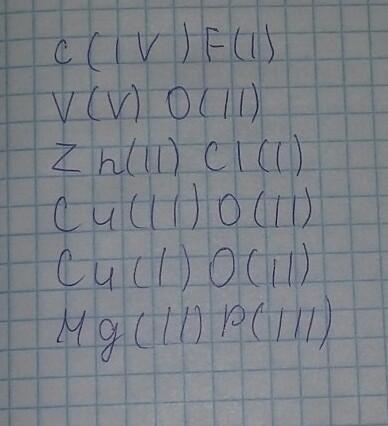 C(IV) F(I)
V(V) O(II)
Zn(II) Cl(I)
Cu(II) O(II)
Cu(I) O(II)
Mg(II) P(III)